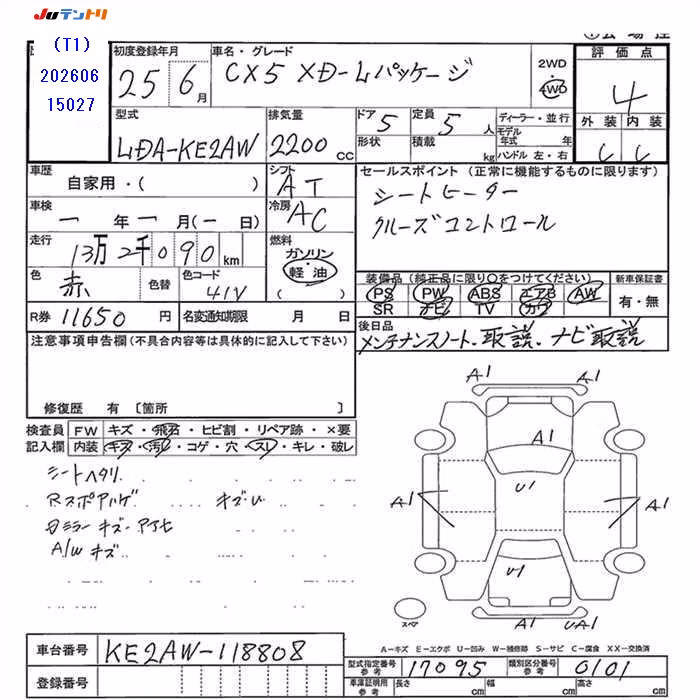 JUテントリ
(T1)
202606
15027
初度登録年月
25年6月
車名・グレード
CX5 XDームパッケージ
2WD
・
4WD
評価点
4
外装 内装
C C
型式
LDA-KE2AW
排気量
2200 cc
ドア 5
形状
定員 5 人
積載 kg
ディーラー・並行
モデル年式 年
ハンドル 左・右
車歴
自家用・( )
シフト
AT
セールスポイント(正常に機能するものに限ります)
シートヒーター
クルーズコントロール
車検
一年一月(一日)
冷房
AC
走行
13万2千090km
燃料
ガソリン
軽油
( )
色
赤
色替
色コード
41V
装備品(純正品に限り○をつけてください)
PS PW ABS エアB AW
SR ナビ TV カワ
新車保証書
有・無
R券 11650 円
名変通知期限 月 日
後日品
メンテナンスノート、取説、ナビ取説
注意事項申告欄(不具合内容等は具体的に記入して下さい)
修復歴 有〔箇所 〕
検査員記入欄
FW キズ・飛石・ヒビ割・リペア跡・×要
内装 キズ・汚れ・コゲ・穴・スレ・キレ・破レ
シートヘタリ
Rスポアハゲ キズ・U
Dミラーキズ・アトヒ
A/Wキズ
A1
A1
A1
U1
A1
A1
U1
A1
UA1
スペア
A-キズ E-エクボ U-凹み W-補修跡 S-サビ C-腐食 XX-交換済
車台番号
KE2AW-118808
登録番号
型式指定番号
参考
17095
類別区分番号
参考
0101
車庫証明用
参考
長さ cm 幅 cm 高さ cm